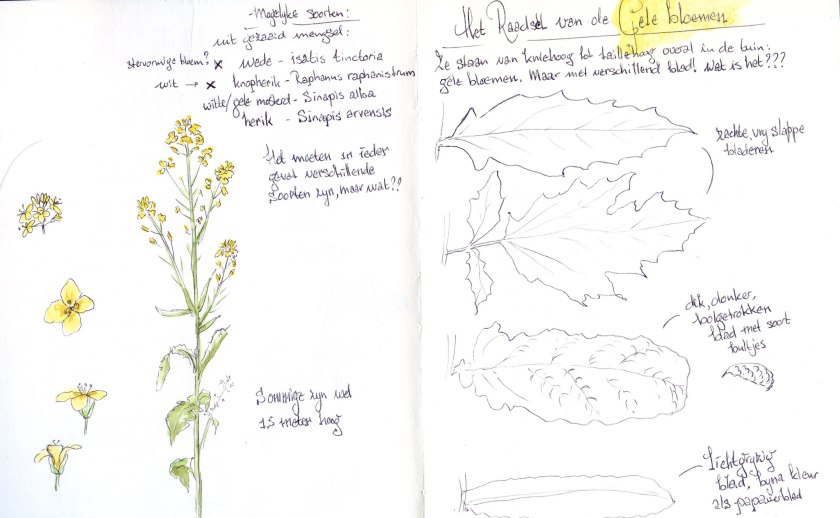 -Mogelijke soorten:
uit gezaaid mengsel:
stervormige bloem? x wede - isatis tinctoria
wit → x knopherik - Raphanus raphanistrum
witte/gele mosterd - Sinapis alba
herik - Sinapis arvensis
Het moeten in ieder
geval verschillende
soorten zijn, maar wat??
Sommige zijn wel
1.5 meter hoog
Het Raadsel van de Gele bloemen
Ze staan van kniehoog tot taillehoog overal in de tuin:
gele bloemen. Maar met verschillend blad! Wat is het???
zachte, vrij slappe
bladeren
dik, donker,
bolgetrokken
blad met soort
bultjes
Lichtgrijzig
blad, bijna kleur
als papaverblad